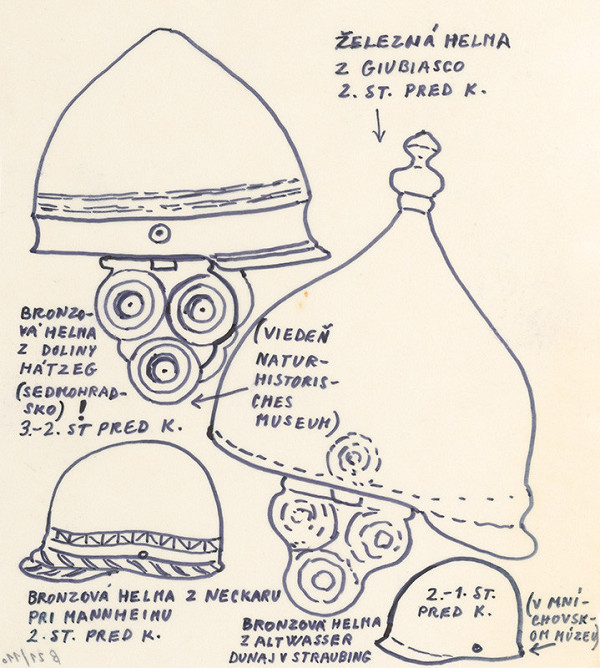 ŽELEZNÁ HELMA
Z GIUBIASCO
2. ST. PRED K.
BRONZO-
VÁ HELMA
Z DOLINY
HÁTZEG
(SEDMOHRAD-
SKO) !
3.-2. ST PRED K.
(VIEDEŇ
NATUR-
HISTORIS-
CHES
MUSEUM)
BRONZOVÁ HELMA Z NECKARU
PRI MANNHEIMU
2. ST. PRED K.
BRONZOVÁ HELMA
Z ALTWASSER
DUNAJ V STRAUBING
2.-1. ST.
PRED K.
(V MNÍ-
CHOVSK-
OM MÚZEU)